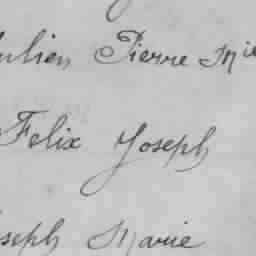 Julien Pierre Mie
Felix Joseph
Joseph Marie